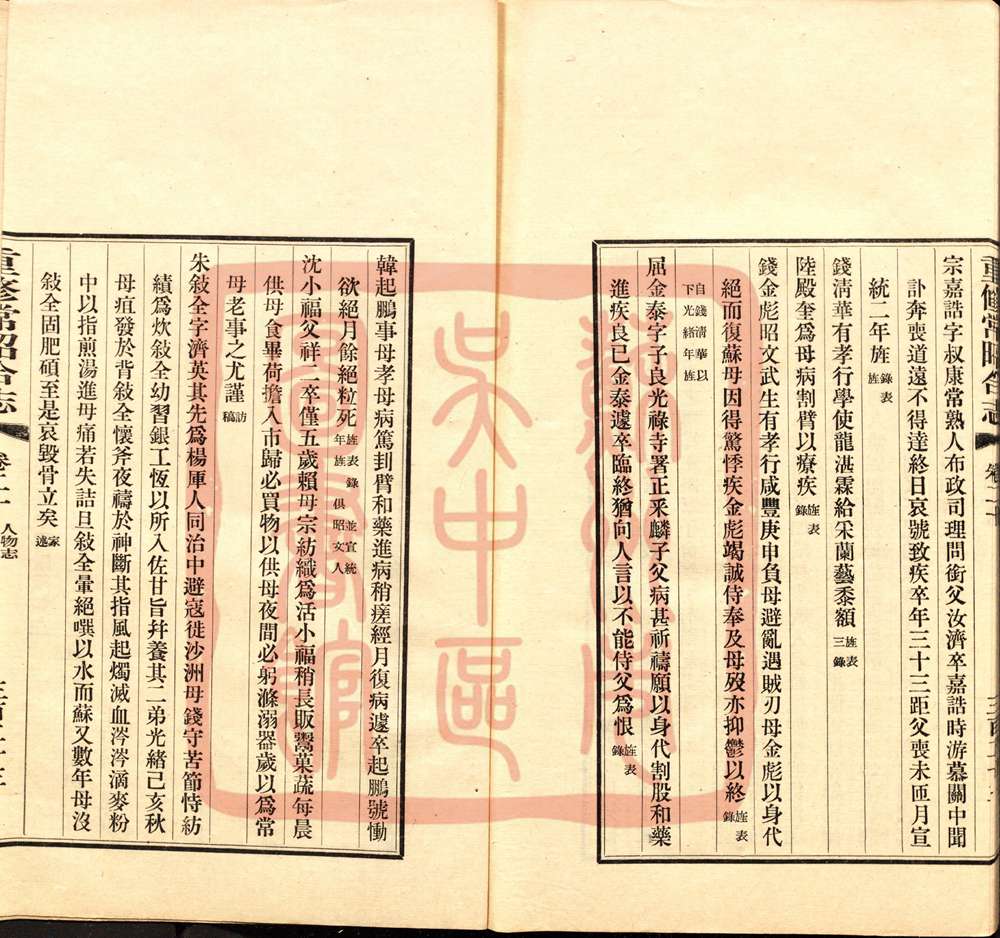 重修常昭合志
宗嘉誥字叔康常熟人布政司理問銜父汝濟卒嘉誥時游慕關中聞
訃奔喪道遠不得達終日哀號致疾卒年三十三距父喪未匝月宣
統二年旌旌表錄
錢清華有孝行學使龍湛霖給采蘭藝黍額旌表三錄
陸殿奎爲母病割臂以療疾旌表錄
錢金彪昭文武生有孝行咸豐庚申負母避亂遇賊刃母金彪以身代
絕而復蘇母因得驚悸疾金彪竭誠侍奉及母歿亦抑鬱以終旌表錄
自錢清華以下光緒年旌
屈金泰字子良光祿寺署正釆麟子父病甚祈禱願以身代割股和藥
進疾良已金泰遽卒臨終猶向人言以不能侍父爲恨旌表錄
韓起鵬事母孝母病篤刲臂和藥進病稍瘥經月復病遽卒起鵬號慟
欲絕月餘絕粒死旌表錄並宣統年旌俱昭文人
沈小福父祥二卒僅五歲賴母宗紡織爲活小福稍長販鬻菓蔬每晨
供母食畢荷擔入市歸必買物以供母夜間必躬滌溺器歲以爲常
母老事之尤謹訪稿
朱敍全字濟英其先爲楊厙人同治中避寇徙沙洲母錢守苦節恃紡
績爲炊敍全幼習銀工恆以所入佐甘旨幷養其二弟光緒己亥秋
母疽發於背敍全懷斧夜禱於神斷其指風起燭滅血涔涔滴麥粉
中以指煎湯進母痛若失詰旦敍全暈絕噀以水而蘇又數年母沒
敍全固肥碩至是哀毀骨立矣家述
重修常昭合志
人物志
吳中區
圖書館